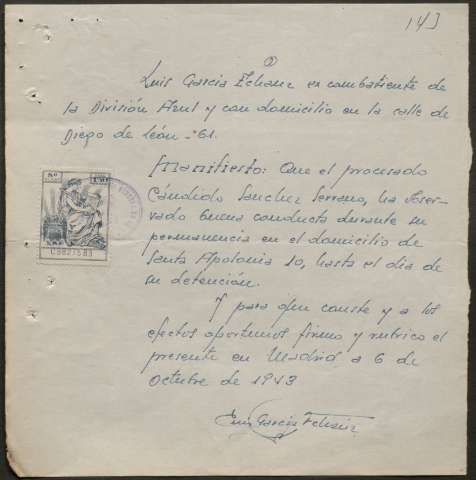 143
Luis Garcia Echanz ex combatiente de
la División Azul y con domicilio en la calle de
Diego de León - 61.
Manifiesto: Que el procesado
Cándido Sanchez Serrano, ha obser-
vado buena conducta durante su
permanencia en el domicilio de
Santa Apolonia 10, hasta el día de
su detención.
Y para que conste y a los
efectos oportunos firmo y rubrico el
presente en Madrid a 6 de
Octubre de 1943
Luis Garcia Echanz